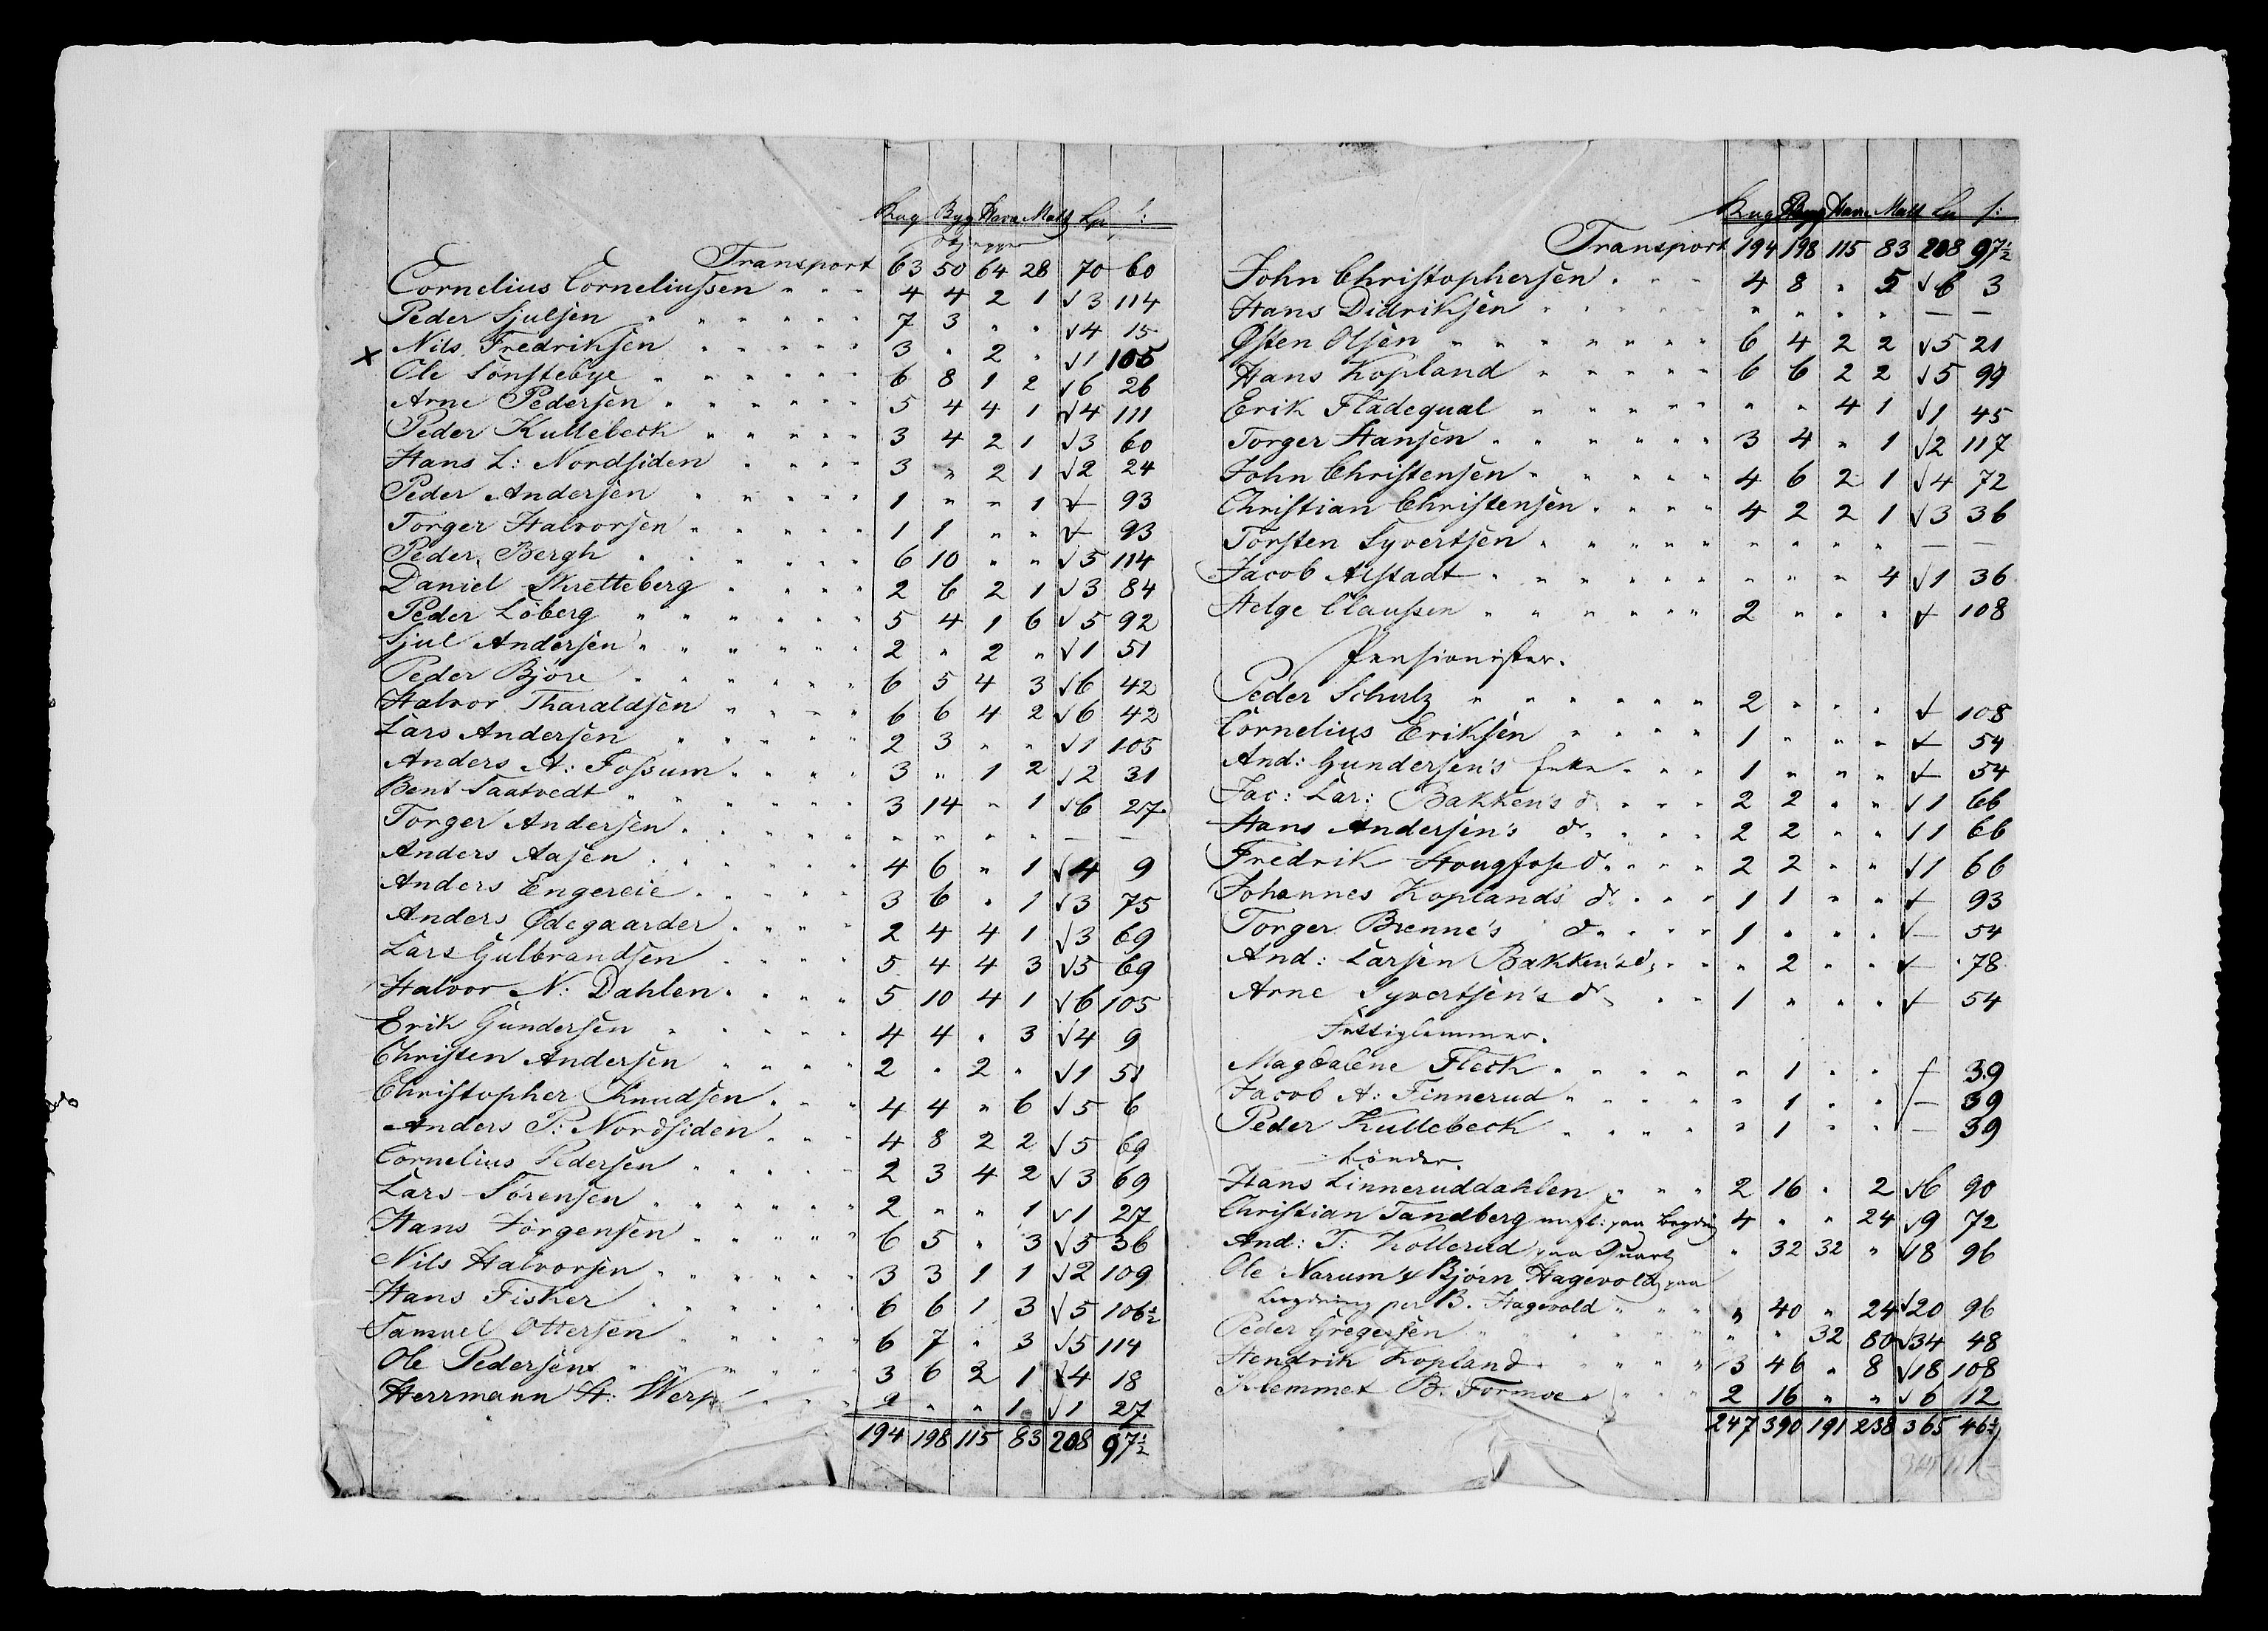 Rug Byg Havre Malt Lp ſ:
Skjepper
Transport 63 50 64 28 70 60
Cornelius Corneliusſen " " " 4 4 2 1 √3 114
Peder Sjulſen " " " " " " 7 3 " " √4 15
x Nils Fredrikſen " " " " " 3 " 2 " √1 105
Ole Sönſtebye " " " " " " 6 8 1 2 √6 26
Arne Pederſen " " " " " " 5 4 4 1 √4 111
Peder Kullebeck " " " " " 3 4 2 1 √3 60
Hans L: Nordſiden " " " " 3 " 2 1 √2 24
Peder Anderſen " " " " " 1 " " 1 √— 93
Torger Halvorſen " " " " " 1 1 " " √— 93
Peder Bergh " " " " " " 6 10 " " √5 114
Daniel Skretteberg " " " " 2 6 2 1 √3 84
Peder Löberg " " " " " " 5 4 1 6 √5 92
Sjul Anderſen " " " " " " 2 " 2 " √1 51
Peder Björe " " " " " " 6 5 4 3 √6 42
Halvor Tharaldſen " " " " 6 6 4 2 √6 42
Lars Anderſen " " " " " 2 3 " " √1 105
Anders A: Foſsum " " " " 3 " 1 2 √2 31
Bent Saatvedt " " " " " " 3 14 " 1 √6 27
Torger Anderſen " " " " " " " " " — —
Anders Aaſen " " " " " " 4 6 " 1 √4 9
Anders Engereie " " " " " 3 6 " 1 √3 75
Anders Ødegaarder " " " " 2 4 4 1 √3 69
Lars Gulbrandſen " " " " 5 4 4 3 √5 69
Halvor N: Dahlen " " " " 5 10 4 1 √6 105
Erik Gunderſen " " " " " 4 4 " 3 √4 9
Chriſten Anderſen " " " " 2 " 2 " √1 51
Chriſtopher Knudſen " " " 4 4 " 6 √5 6
Anders P: Nordſiden " " " 4 8 2 2 √5 69
Cornelius Pederſen " " " " " 2 3 4 2 √3 69
Lars Sörenſen " " " " " " 2 " " 1 √1 27
Hans Jörgenſen " " " " " 6 5 " 3 √5 36
Nils Halvorſen " " " " " " 3 3 1 1 √2 109
Hans Fisker " " " " " " 6 6 1 3 √5 106½
Samuel Otterſen " " " " " 6 7 " 3 √5 114
Ole Pederſen " " " " " " 3 6 2 1 √4 18
Herrmann H: Werp " " " " 2 " " 1 √1 27
194 198 115 83 208 97½
Rug Byg Havre Malt Lp ſ:
Transport 194 198 115 83 208 97½
John Chriſtopherſen " " " 4 8 " 5 √6 3
Hans Didrikſen " " " " " " " " " " — —
Øſten Olſen " " " " " " " 6 4 2 2 √5 21
Hans Kopland " " " " " 6 6 2 2 √5 99
Erik Fladequal " " " " " " " " 4 1 √1 45
Torger Hanſen " " " " " " 3 4 " 1 √2 117
John Chriſtenſen " " " " " 4 6 2 1 √4 72
Chriſtian Chriſtenſen " " " " 4 2 2 1 √3 36
Torſten Syvertſen " " " " " " " " " " — —
Jacob Alſtadt " " " " " " " " " 4 √1 36
Helge Clauſsen " " " " " " 2 " " " √— 108
Penſioniſter.
Peder Schulz " " " " " " 2 " " " √— 108
Cornelius Erikſen " " " " 1 " " " √— 54
And: Gunderſen's Enke " " " 1 " " " √— 54
Jac: Lar: Bakken's do " " " 2 2 " " √1 66
Hans Anderſen's do " " " 2 2 " " √1 66
Fredrik Hougfoſs do " " " 2 2 " " √1 66
Johannes Koplands do " " " 1 1 " " √— 93
Torger Brenne's do " " " 1 " " " √— 54
And: Larſen Bakken's do " " " 2 " " √— 78
Arne Syvertſen's do " " " 1 " " " √— 54
Fattiglemmer.
Magdalene Fleck " " " " " " 1 " " √— 39
Jacob A: Finnerud " " " " " " 1 " " √— 39
Peder Kullebeck " " " " " " 1 " " — 39
Bönder.
Hans Linneruddahlen " " " 2 16 " 2 √6 90
Chriſtian Tandberg m. fl: paa Bregdning 4 " " 24 √9 72
And: T: Kollerud paa Quartz " 32 32 " √18 96
Ole Narum & Björn Hagevold paa
Bregdning per B. Hagevold " " " " 40 " 24 √20 96
Peder Gregerſen " " " " " " " " 32 80 √34 48
Hendrik Kopland " " " " " 3 46 " 8 √18 108
Klemmet B. Formoe " " " 2 16 " " √6 12
247 390 191 238 365 46½